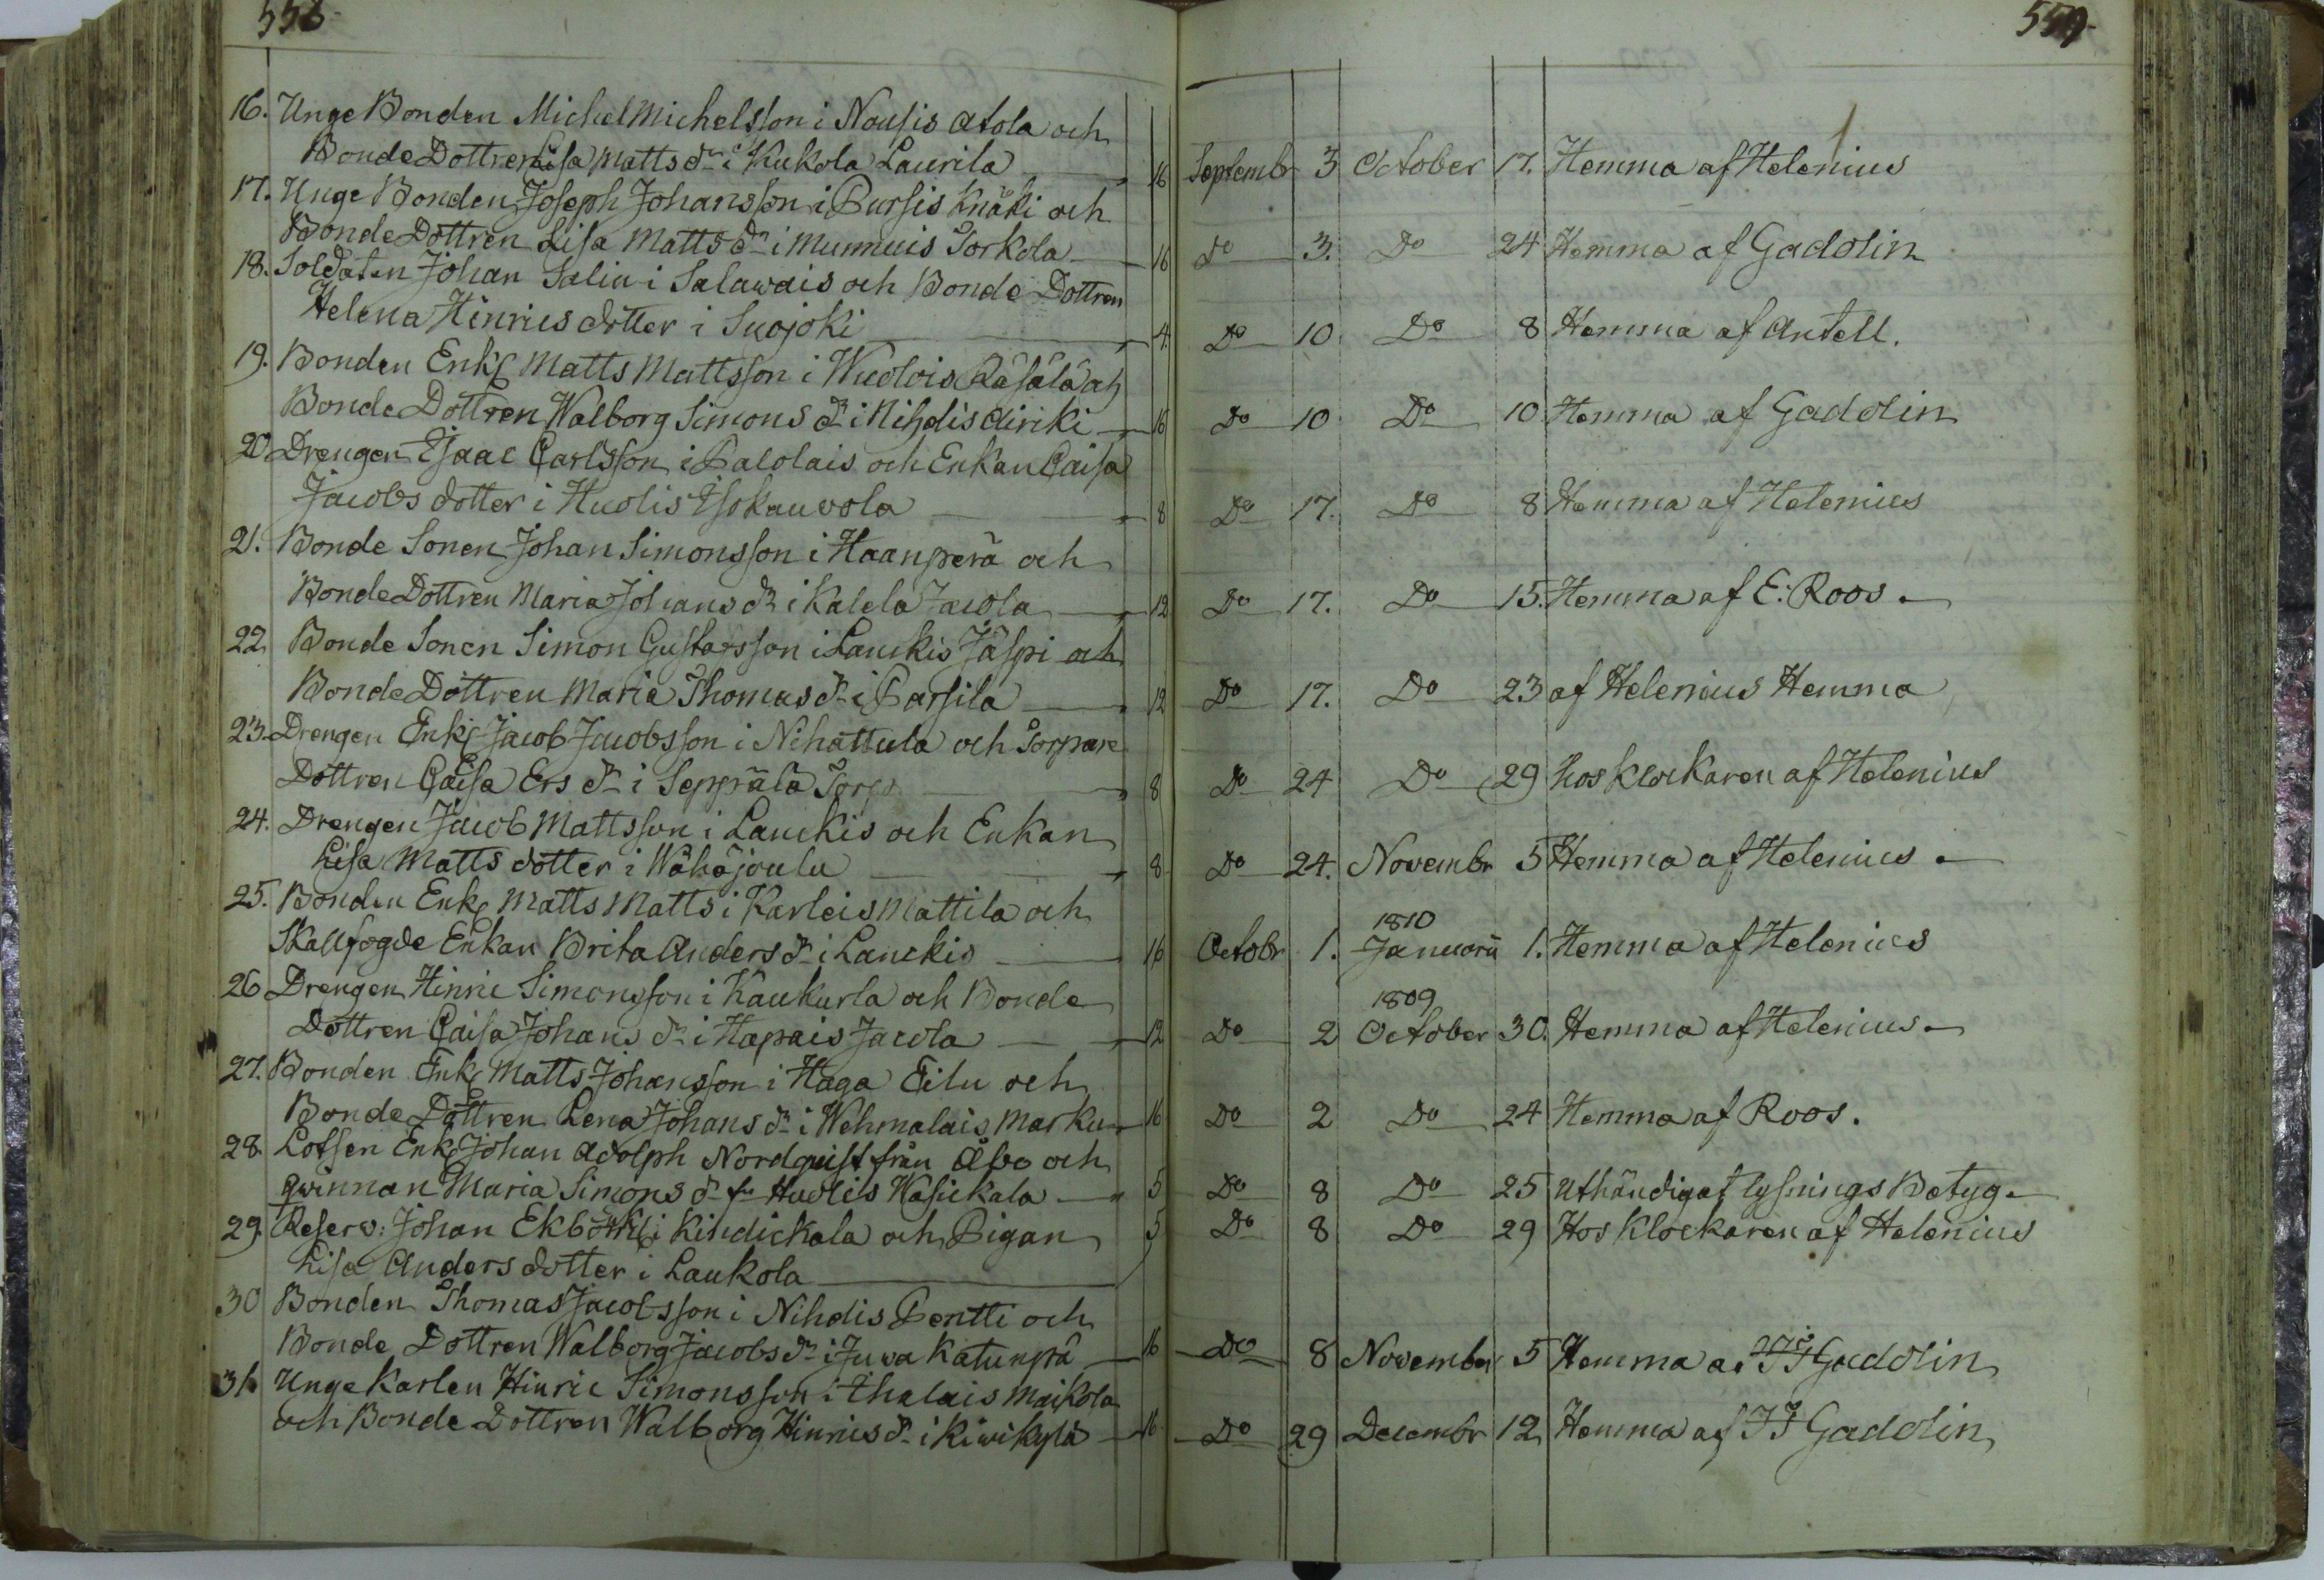 558.
16. Unge Bonden Michel Michelsson i Nousis Atola och
Bonde Dottren Lisa Matts dr i Kukola Laurila 16
17. Unge Bonden Joseph Johansson i Pursis Knäki och
Bonde Dottren Lisa Matts dr i Munnuis Torkola 16
18. Soldaten Johan Salin i Salawais och Bonde Dottren
Helena Hinrics dotter i Suojoki 4
19. Bonden Enkl Matts Mattsson i Wuolois Räsälä och
Bonde Dottren Walborg Simons dr i Nihdis Airiki 16
20. Drengen Isaac Carlsson i Palolais och Enkan Caisa
Jacobs dotter i Huolis Isokauvola 8
21. Bonde Sonen Johan Simonsson i Haanperä och
Bonde Dottren Maria Johans dr i Kalela Jacola 12
22. Bonde Sonen Simon Gustafsson i Lauckis Jäspi och
Bonde Dottren Maria Thomas dr i Parsila 12
23. Drengen Enkl Jacob Jacobsson i Nihattula och Torpare
Dottren Caisa Ers dr i Seppälä Torp 8
24. Drengen Jacob Mattsson i Lauckis och Enkan
Lisa Matts dotter i Wähäjoulu 8
25. Bonden Enkl Matts Matts i Karleis Mattila och
Skallfogde Enkan Brita Anders dr i Lauckis 16
26 Drengen Hinric Simonsson i Kaukurla och Bonde
Dottren Caisa Johans dr i Hapais Jacola 12
27. Bonden Enkl Matts Johansson i Haga Eilu och
Bonde Dottren Lena Johans dr i Wehmalais Marku 16
28. Lotsen Enkl Johan Adolph Nordquist från Åbo och
qwinnan Maria Simons dr fr Huolis Wasickala 5
29. Reserv: Johan Ekbom Enkl i Kindickala och Pigan 5
Lisa Anders dotter i Laukola
30 Bonden Thomas Jacobsson i Nihdis Pentti och
Bonde Dottren Walborg Jacobs dr i Juva Katunpä 16
31. Unge Karlen Hinric Simonsson i Ihalais Maikola
och Bonde Dottren Walborg Hinrics dr i Kiwikylä 16
559.
Septembr 3 October 17. Hemma af Helenius
Do 3. Do 24 Hemma af Gadolin
Do 10 Do 8 Hemma af Antell.
Do 10 Do 10 Hemma af Gadolin
Do 17. Do 8 Hemma af Helenius
Do 17. Do 15. Hemma af E. Roos.
Do 17. Do 23 af Helenius Hemma
Do 24 Do 29 hos klockaren af Helenius
Do 24. Novembr 5 Hemma af Helenius
1810
Octobr 1. Januarii 1. Hemma af Helenius
1809
Do 2 October 30. Hemma af Helenius
Do 2 Do 24 Hemma af Roos.
Do 8 Do 25 Uthändigat lysnings Betyg
Do 8 Do 29 Hos Klockaren af Helenius
Do 8 November 5 Hemma af JJ Gadolin
Do 29 Decembr 12 Hemma af JJ Gadolin